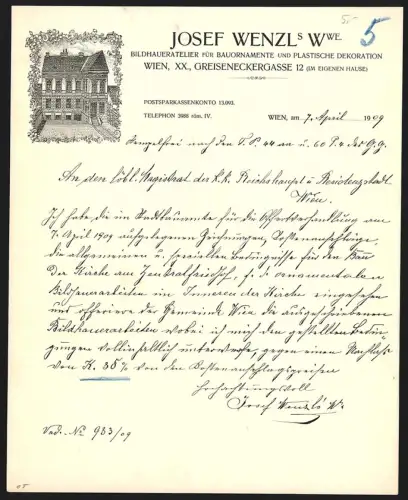 5.-
5
JOSEF WENZLS WWE.
BILDHAUERATELIER FÜR BAUORNAMENTE UND PLASTISCHE DEKORATION
WIEN, XX., GREISENECKERGASSE 12 (IM EIGENEN HAUSE)
POSTSPARKASSENKONTO 13.093.
TELEPHON 3988 röm. IV.
WIEN, am 7. April 1909
Stempelfrei nach den T.P. 44 und 60 P. 4 des G.G.
An den löbl. Magistrat der k.k. Reichshaupt u Residenzstadt
Wien.
Ich habe die im Stadtbauamte für die Offertverhandlung am
7. April 1909 aufgelegenen Zeichnungen, Kostenanschläge,
die allgemeinen u. speziellen Bedingnisse für den Bau
der Kirche am Zentralfriedhof, f. d. ornamentalen
Bildhauerarbeiten im Inneren der Kirche eingesehen
und offeriere der Gemeinde Wien die ausgeschriebenen
Bildhauerarbeiten wobei ich mich den gestellten Bedin-
gungen vollinhaltlich unterwerfe, gegen einen Nachlaß
von K. 38% von den Kostenanschlagspreisen
Hochachtungsvoll
Josef Wenzl's We
Vad. No 983/09